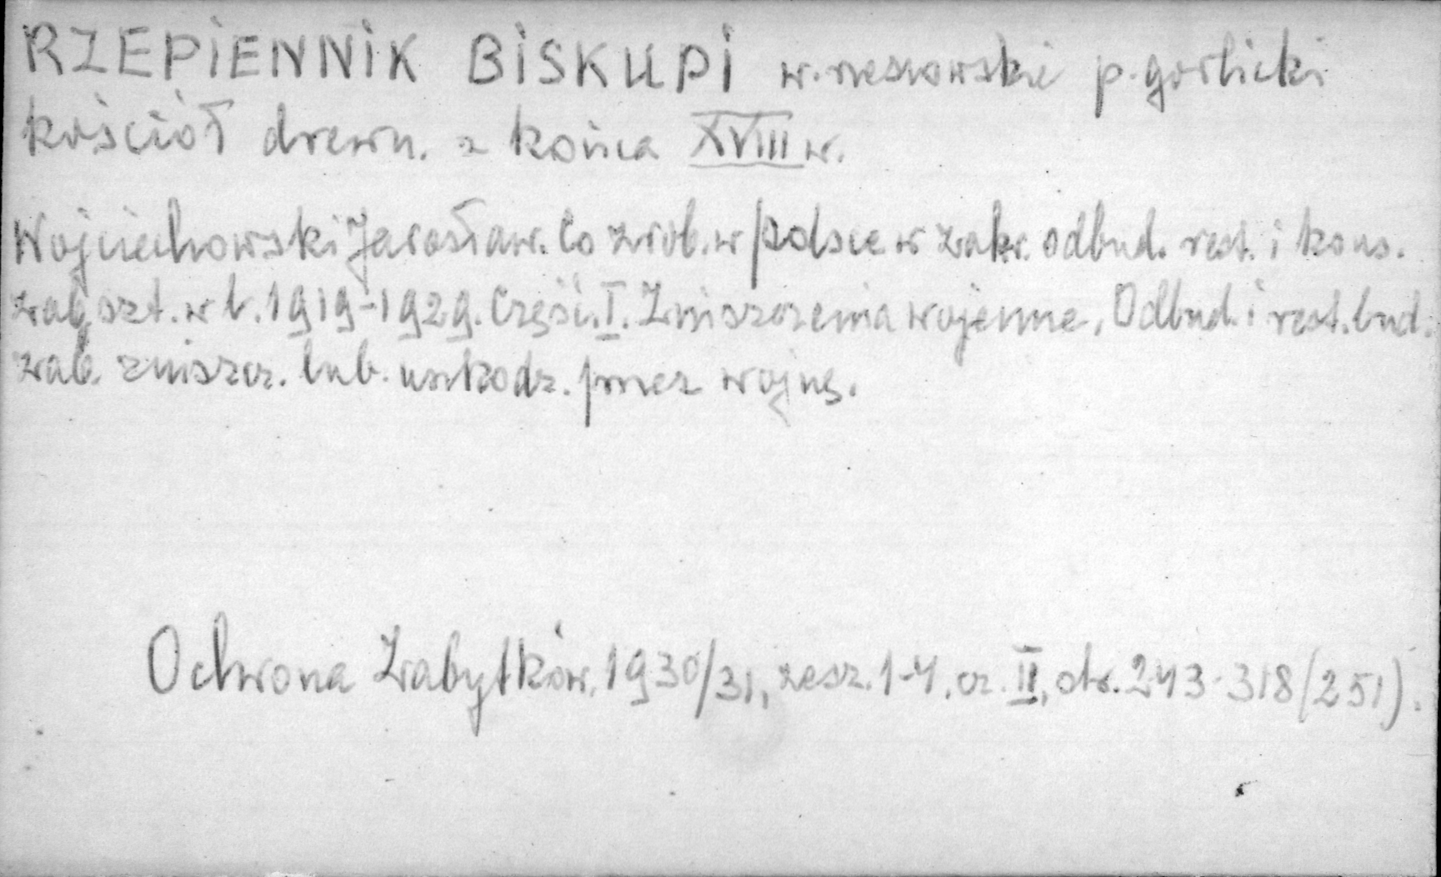 RZEPIENNIK BISKUPI w. rzeszowskie p. gorlicki
kościół drewn. z końca XVIII w.
Wojciechowski Jarosław. Co zrob. w Polsce w zakr. odbud. rest. i kons.
zab. szt. w l. 1919-1929. Część. I. Zniszczenia wojenne, Odbud. i rest. bud.
zab. zniszcz. lub uszkodz. przez wojnę.
Ochrona Zabytków, 1930/31, zesz. 1-4, cz. II, str. 243-318 (251).